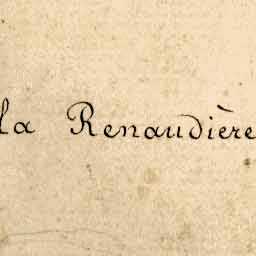 la Renaudière